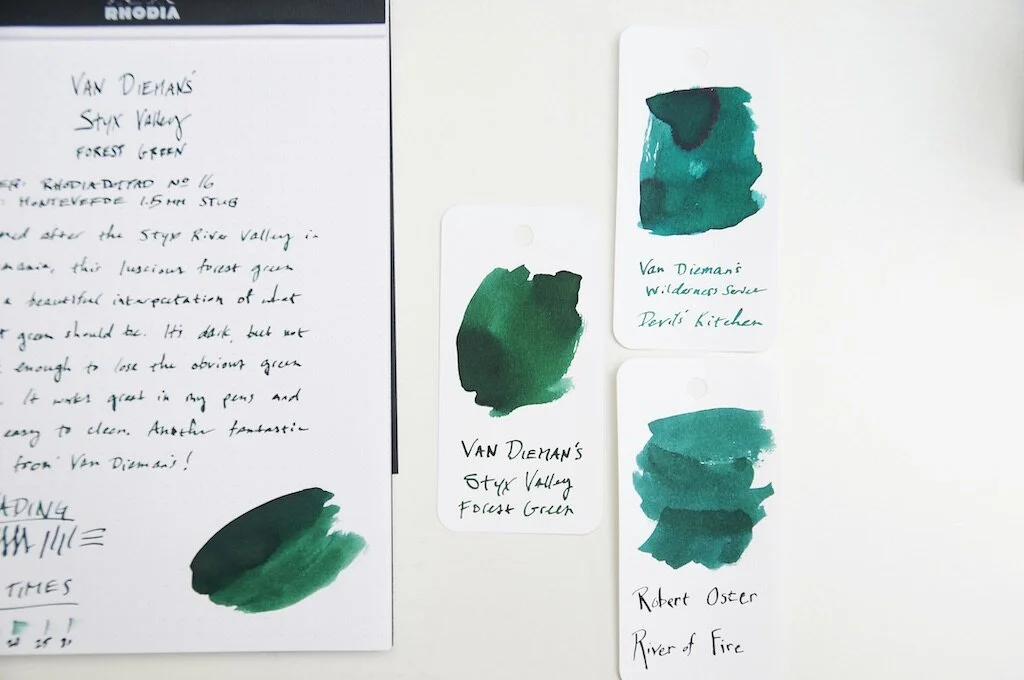 RHODIA
VAN DIEMAN'S
Styx Valley
FOREST GREEN
ER: RHODIA DOTPAD Nº 16
: MONTEVERDE 1.5MM STUB
ned after the Styx River Valley in
mania, this luscious forest green
a beautiful interpretation of what
t green should be. It's dark, but not
enough to lose the obvious green
. It works great in my pens and
easy to clean. Another fantastic
from Van Dieman's!
ADING
TIMES
20 25 30
VAN DIEMAN'S
Styx Valley
Forest Green
Van Dieman's
Wilderness Series
Devil's Kitchen
Robert Oster
River of Fire